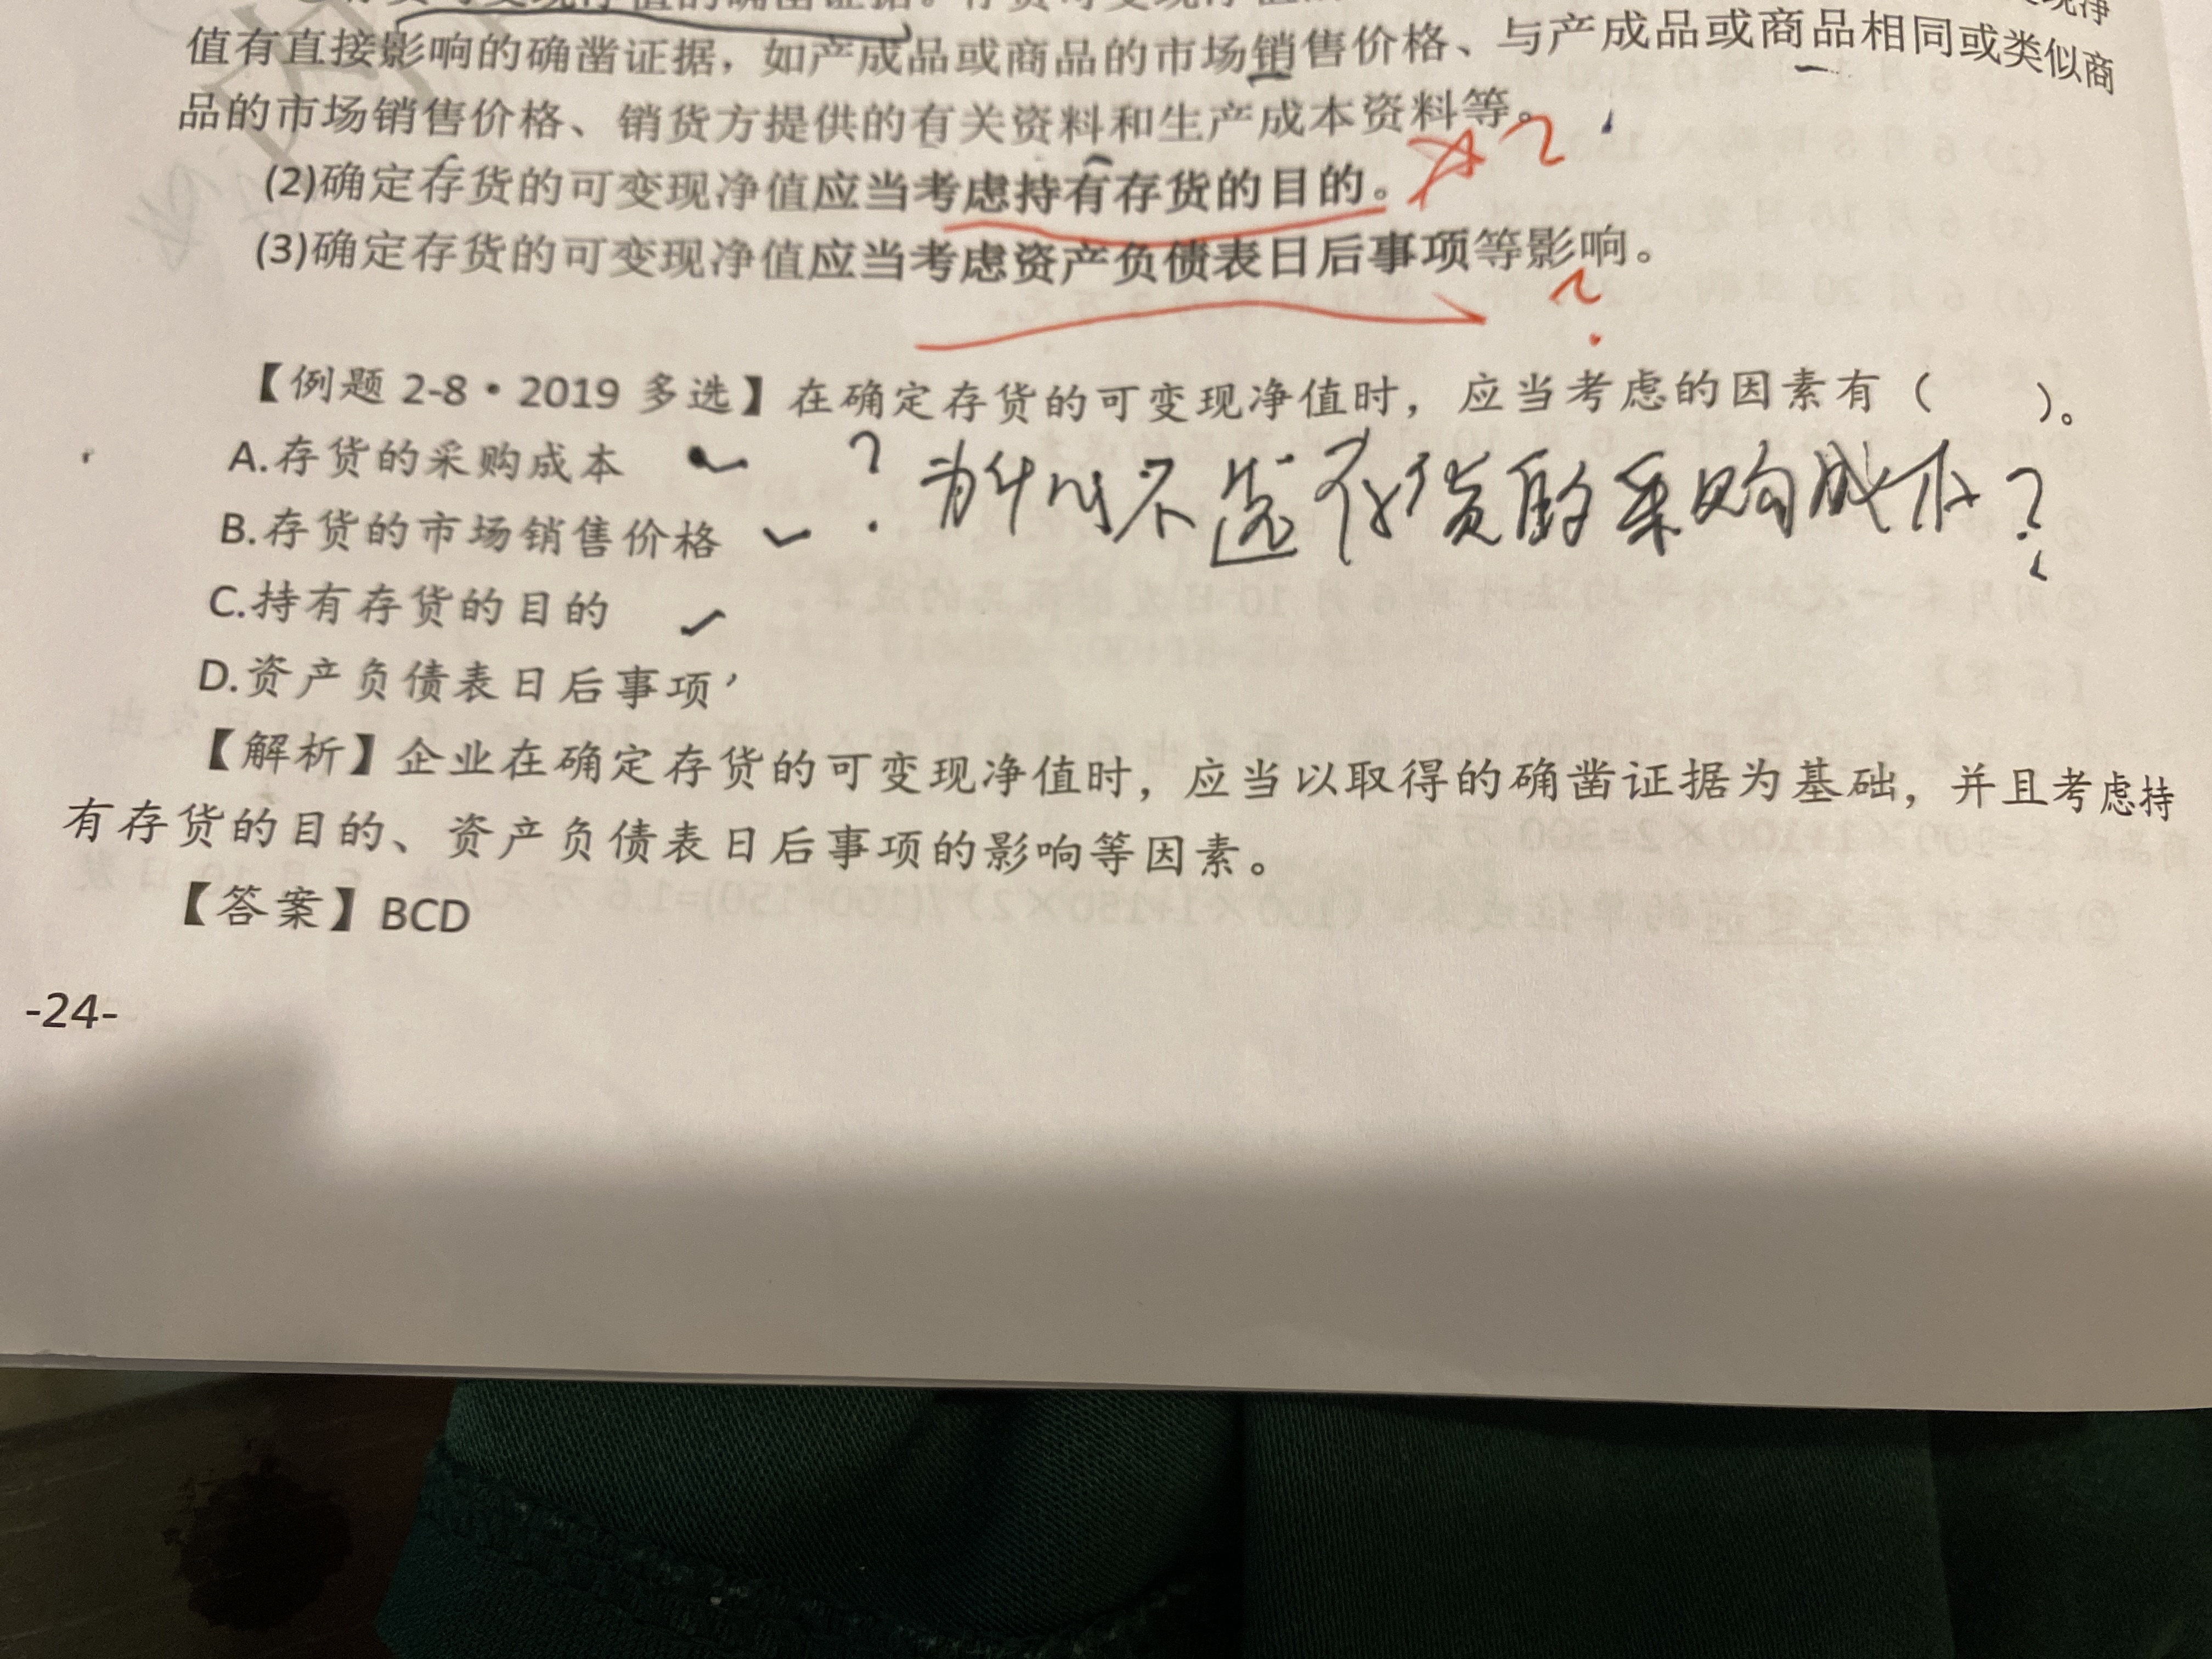 值有直接影响的确凿证据，如产成品或商品的市场销售价格、与产成品或商品相同或类似商
品的市场销售价格、销货方提供的有关资料和生产成本资料等。
(2)确定存货的可变现净值应当考虑持有存货的目的。
(3)确定存货的可变现净值应当考虑资产负债表日后事项等影响。
?
【例题 2-8·2019 多选】在确定存货的可变现净值时，应当考虑的因素有（ ）。
A.存货的采购成本 ? 为什么不选存货的采购成本?
B.存货的市场销售价格
C.持有存货的目的
D.资产负债表日后事项
【解析】企业在确定存货的可变现净值时，应当以取得的确凿证据为基础，并且考虑持
有存货的目的、资产负债表日后事项的影响等因素。
【答案】BCD
-24-